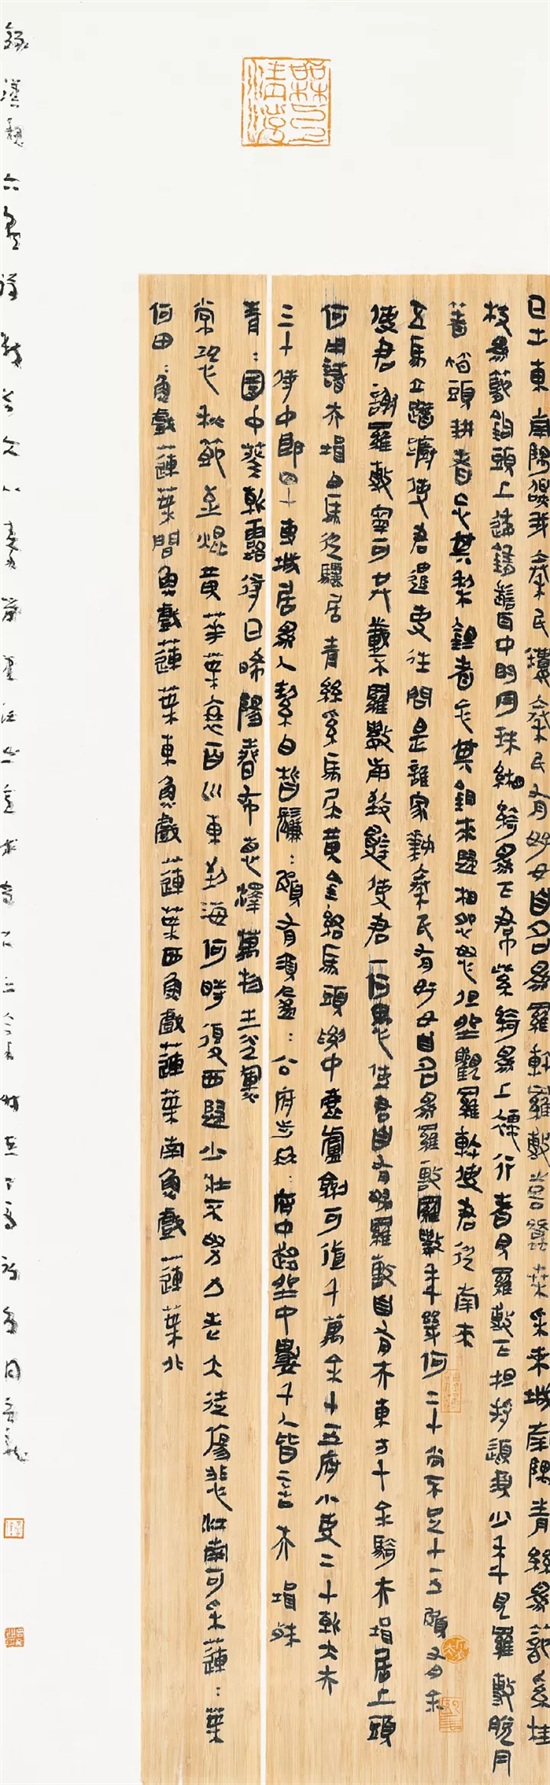 日出東南隅照我秦氏樓秦氏有好女自名爲羅敷羅敷善蠶桑采桑城南隅青絲爲籠系桂
枝爲籠鉤頭上倭墮髻耳中明月珠緗綺爲下帬紫綺爲上襦行者見羅敷下担捋髭須少年見羅敷脫冃
著帩頭耕者忘其犁鉏者忘其鉏來歸相怨怒但坐觀羅敷使君從南來
五馬立踟躕使君遣吏往問是誰家姝秦氏有好女自名爲羅敷羅敷年幾何二十尚不足十五頗有余
使君謝羅敷寧可共載不羅敷前致辭使君一何愚使君自有婦羅敷自有夫東方千余騎夫壻居上頭
何用識夫壻白馬從驪居青絲系馬尾黃金絡馬頭腰中鹿盧劍可值千萬余十五府小吏二十朝大夫
三十侍中郎四十專城居爲人絜白皙鬑:頗有須盈:公府步冉:府中趨坐中數千人皆言夫壻殊
青:園中葵朝露待日晞陽春布悳澤萬物生光輝
常恐秋節至焜黃華葉衰百川東到海何時復西歸少壯不努力老大徒傷悲江南可采蓮:葉
何田:魚戲蓮葉間魚戲蓮葉東魚戲蓮葉西魚戲蓮葉南魚戲蓮葉北
錄漢魏六